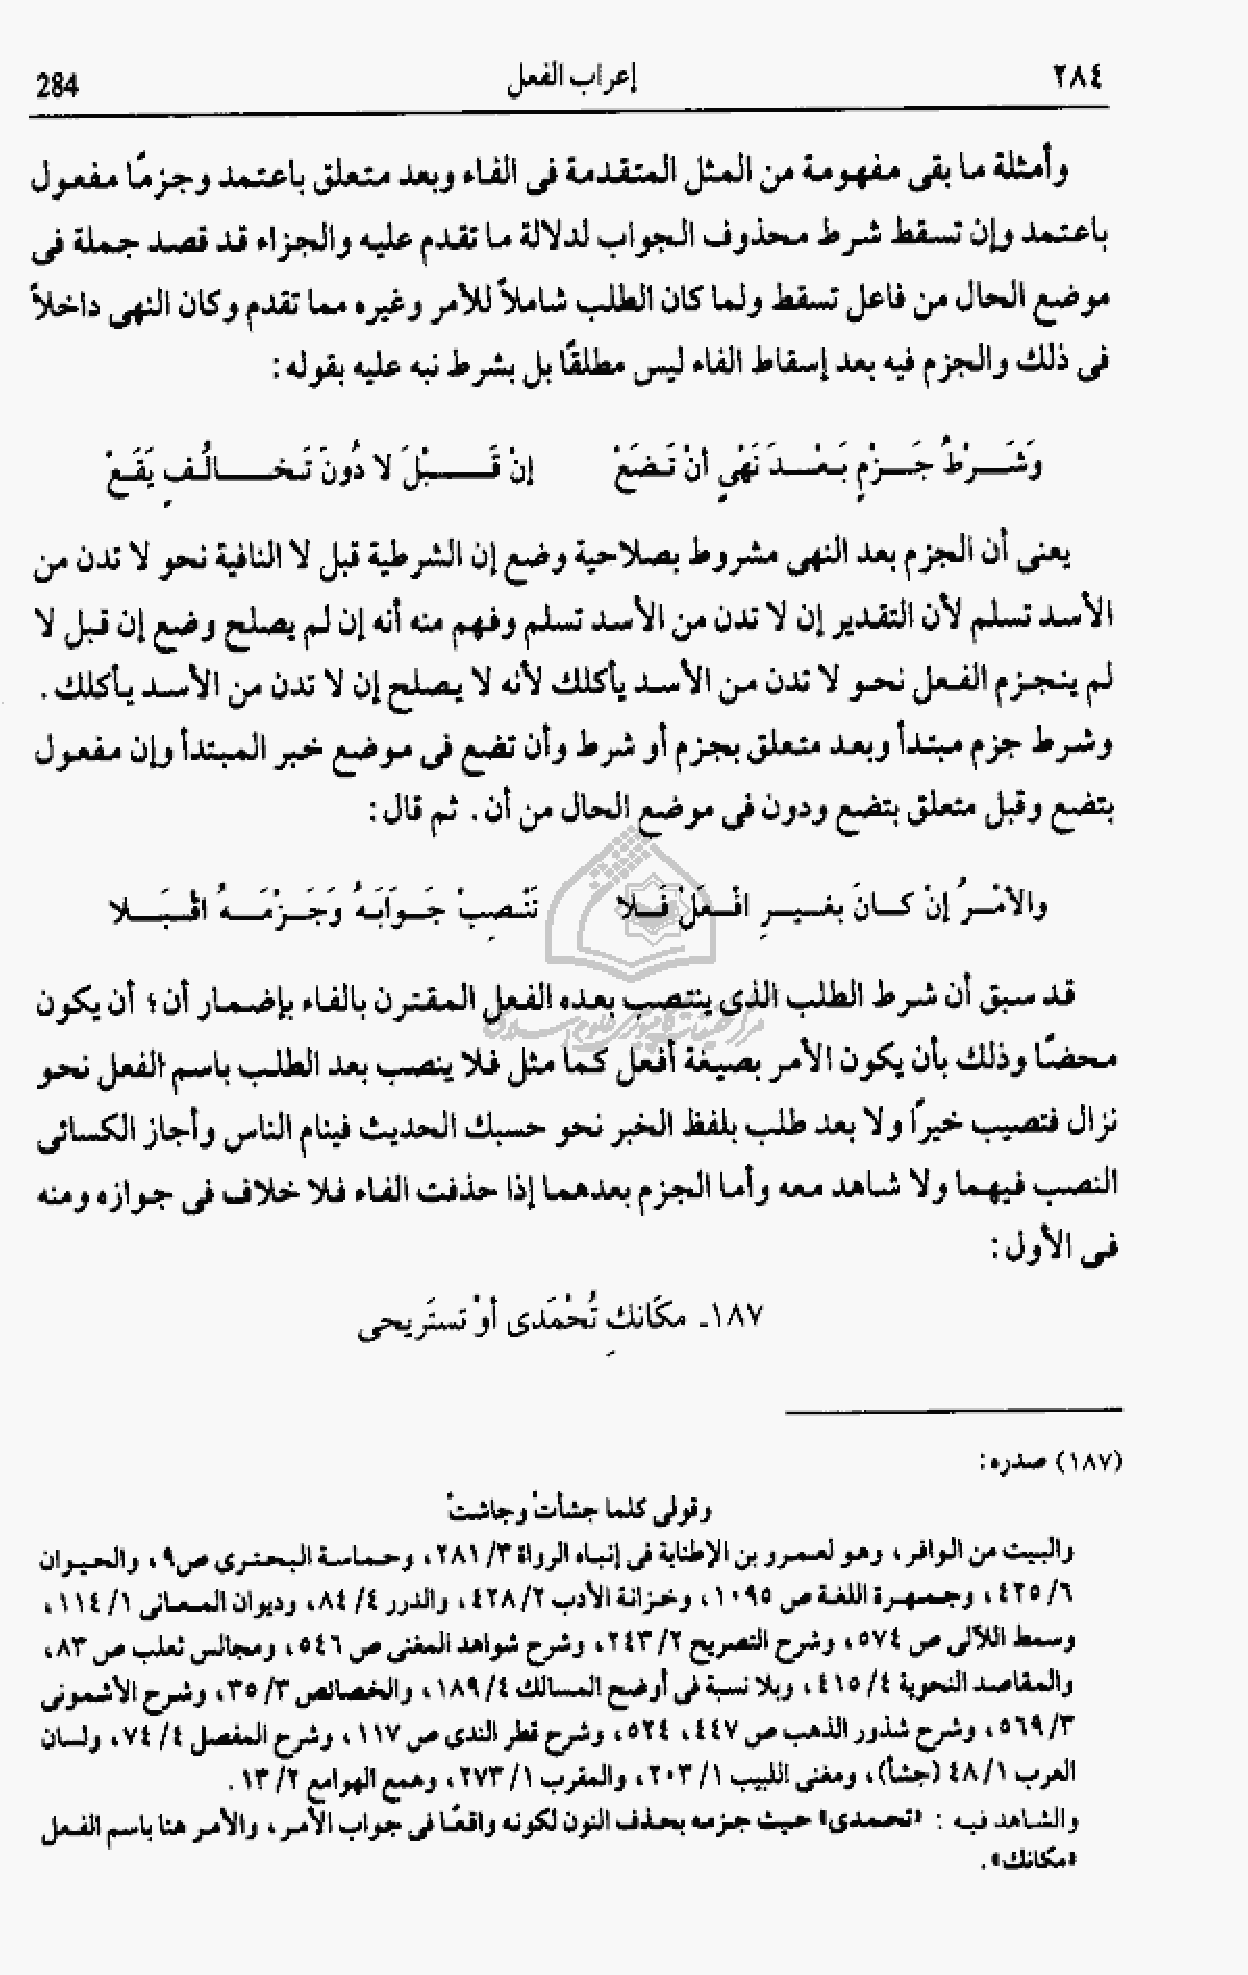 ٢٨٤ إعراب الفعل 284
وأمثلة ما بقى مفهومة من المثل المتقدمة فى الفاء وبعد متعلق باعتمد وجزمًا مفعول
باعتمد وإن تسقط شرط محذوف الجواب لدلالة ما تقدم عليه والجزاء قد قصد جملة فى
موضع الحال من فاعل تسقط ولما كان الطلب شاملاً للأمر وغيره مما تقدم وكان النهى داخلاً
فى ذلك والجزم فيه بعد إسقاط الفاء ليس مطلقًا بل بشرط نبه عليه بقوله :
وَشَرْطُ جَزْمٍ بَعْدَ نَهْىٍ أنْ تَضَعْ إنْ قَبْلَ لا دُونَ تَخَالُفٍ يَقَعْ
يعنى أن الجزم بعد النهى مشروط بصلاحية وضع إن الشرطية قبل لا النافية نحو لا تدن من
الأسد تسلم لأن التقدير إن لا تدن من الأسد تسلم وفهم منه أنه إن لم يصلح وضع إن قبل لا
لم ينجزم الفعل نحو لا تدن من الأسد يأكلك لأنه لا يصلح إن لا تدن من الأسد يأكلك .
وشرط جزم مبتدأ وبعد متعلق بجزم أو شرط وأن تضع فى موضع خبر المبتدأ وإن مفعول
بتضع وقبل متعلق بتضع ودون فى موضع الحال من أن . ثم قال :
والأمْرُ إنْ كانَ بغيرِ افْعَلْ فَلا تَنْصِبْ جَوَابَهُ وَجَزْمَهُ اقْبَلا
قد سبق أن شرط الطلب الذى ينتصب بعده الفعل المقترن بالفاء بإضمار أن ؛ أن يكون
محضًا وذلك بأن يكون الأمر بصيغة أفعل كما مثل فلا ينصب بعد الطلب باسم الفعل نحو
نزال فتصيب خيرًا ولا بعد طلب بلفظ الخبر نحو حسبك الحديث فينام الناس وأجاز الكسائى
النصب فيهما ولا شاهد معه وأما الجزم بعدهما إذا حذفت الفاء فلا خلاف فى جوازه ومنه
فى الأول :
١٨٧ـ مكَانكِ تُحْمَدى أوْ تستَريحى
(١٨٧) صدره:
وقولى كلما جشأتْ وجاشتْ
والبيت من الوافر ، وهو لعمرو بن الإطنابة فى إنباه الرواة ٣/ ٢٨١ ، وحماسة البحترى ص٩ ، والحيوان
٦/ ٤٢٥ ، وجمهرة اللغة ص ١٠٩٥ ، وخزانة الأدب ٢/ ٤٢٨ ، والدرر ٤/ ٨٤ ، وديوان المعانى ١/ ١١٤ ،
وسمط اللآلى ص ٥٧٤ ، وشرح التصريح ٢/ ٢٤٣ ، وشرح شواهد المغنى ص ٥٤٦ ، ومجالس ثعلب ص ٨٣ ،
والمقاصد النحوية ٤/ ٤١٥ ، وبلا نسبة فى أوضح المسالك ٤/ ١٨٩ ، والخصائص ٣/ ٣٥ ، وشرح الأشمونى
٣/ ٥٦٩ ، وشرح شذور الذهب ص ٤٤٧ ، ٥٢٤ ، وشرح قطر الندى ص ١١٧ ، وشرح المفصل ٤/ ٧٤ ، ولسان
العرب ١/ ٤٨ (جشأ) ، ومغنى اللبيب ١/ ٢٠٣ ، والمقرب ١/ ٢٧٣ ، وهمع الهوامع ٢/ ١٣ .
والشاهد فيه : «تحمدى» حيث جزمه بحذف النون لكونه واقعًا فى جواب الأمر ، والأمر هنا باسم الفعل
«مكانك» .